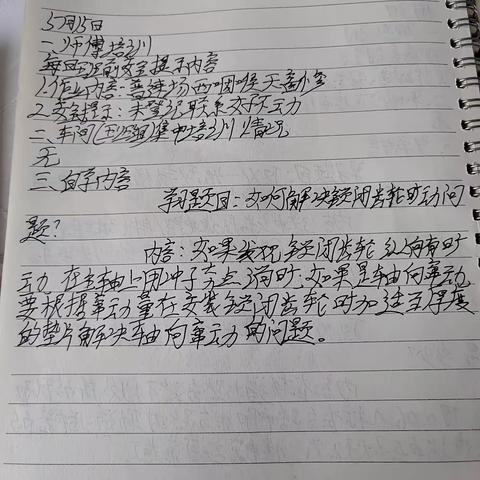 5月15日
一、师傅培训
每日班前安全提示内容
1.作业内容:普速场西咽喉天窗作业
2.安全提示:未登记联系好不动
二、车间(班组)集中培训情况
无
三、自学内容
学习题目:如何解决锁闭齿轮旷动问
题?
内容:如果发现锁闭齿轮纵向有旷
动,在主轴上用冲子夯点消旷,如果是轴向窜动
要根据窜动量在安装锁闭齿轮时加适当厚度
的垫片解决轴向窜动的问题。